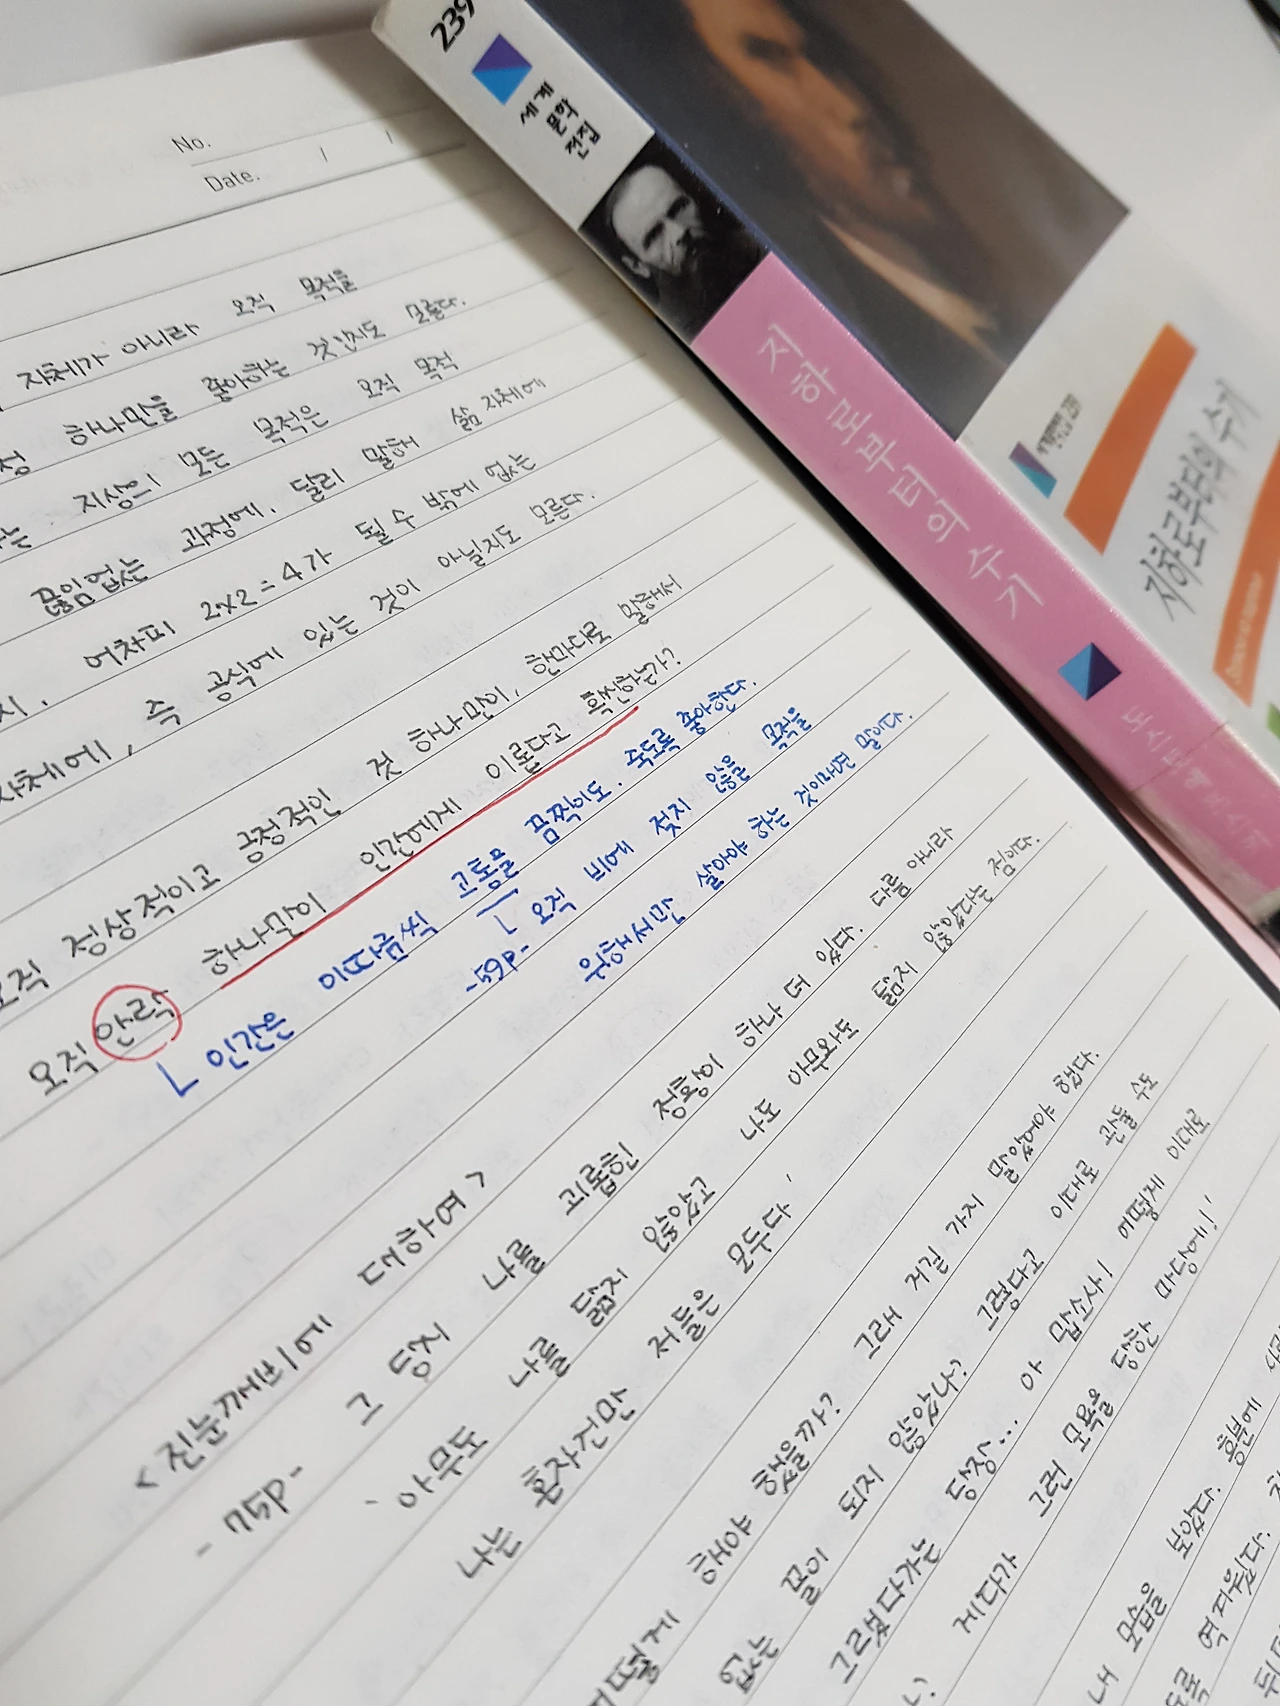 No.
Date. / /
자체가 아니라 오직 목적을
하나만을 좋아하는 것인지도 모른다.
지상의 모든 목적은 오직 목적
끊임없는 과정에. 달리 말해 삶 자체에
어차피 2x2=4가 될 수 밖에 없는
자체에, 즉 공식에 있는 것이 아닐지도 모른다.
오직 정상적이고 긍정적인 것 하나만이, 한마디로 말해서
오직 안락 하나만이 인간에게 이롭다고 확신하는가?
ㄴ 인간은 이따금씩 고통을 끔찍이도. 죽도록 좋아한다.
-59P- ㄴ 오직 비에 젖지 않을 목적을
위해서만 살아야 하는 것이라면 말이다.
<진눈깨비에 대하여>
-75P- 그 당시 나를 괴롭힌 정황이 하나 더 있다. 다름 아니라
아무도 나를 닮지 않았고 나도 아무와도 닮지 않았다는 점이다.
나는 혼자건만 저들은 모두다'
어떻게 해야 했을까? 그래 저길 가지 말았어야 했다.
없는 끌이 되지 않았나? 그렇다고 이대로 관둘 수도
그랬다가는 당장... 아 맙소사! 어떻게 이대로
? 게다가 그런 모욕을 당한 마당에!'
내 모습을 보았다.
239
세계
문학
전집
지하로부터의 수기
도스토예프스키
세계문학전집 239
지하로부터의 수기